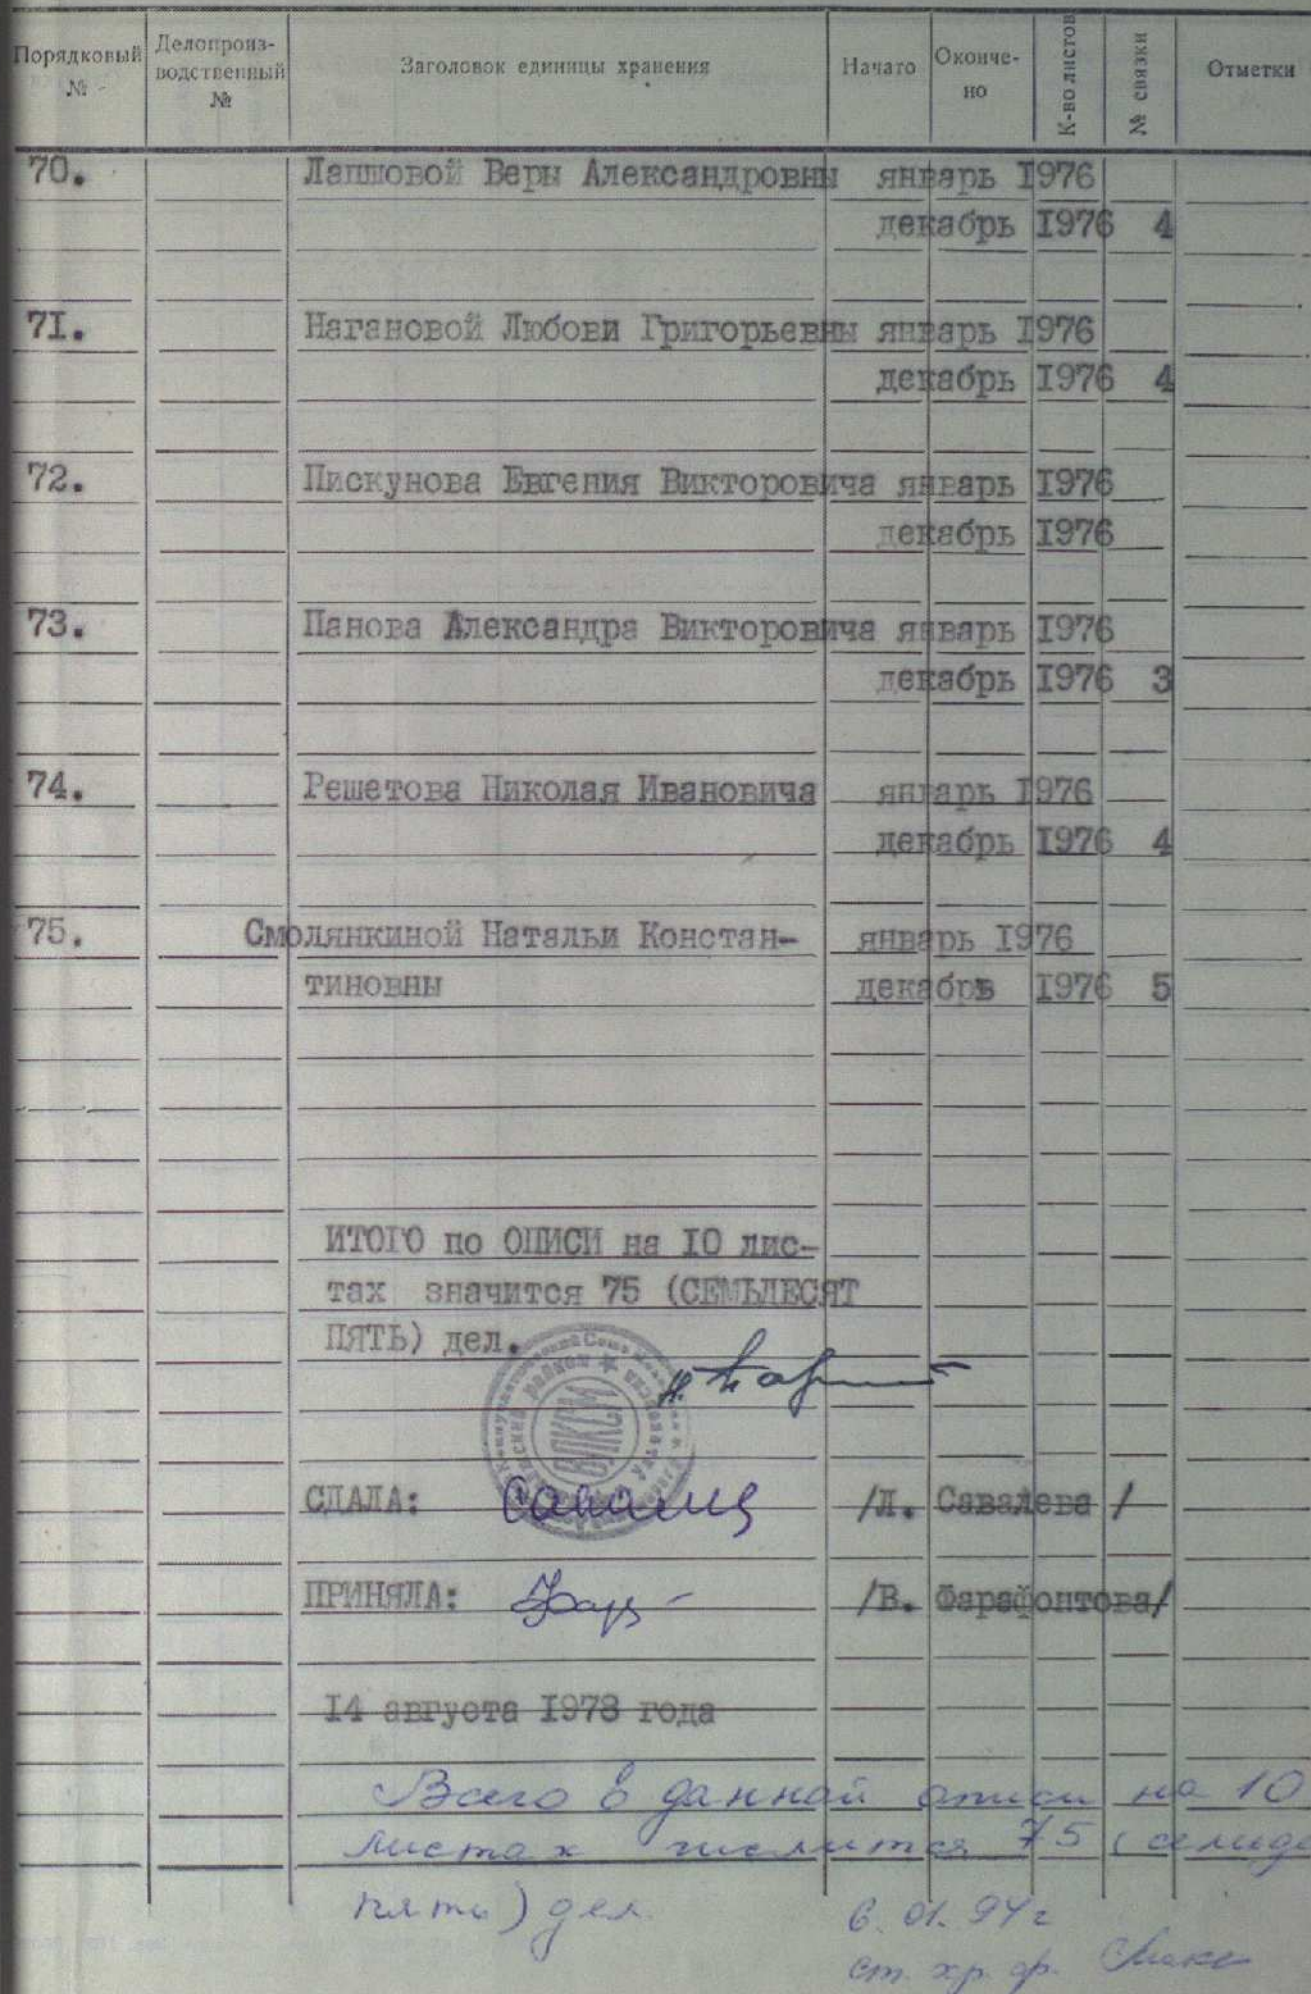 Порядковый № Делопроиз-водственный № Заголовок единицы хранения Начаго Окончено К-во листов № связки Отметки
70. Лапшовой Веры Александровны январь I976
декабрь I976 4
7I. Нагановой Любови Григорьевны январь I976
декабрь I976 4
72. Пискунова Евгения Викторовича январь I976
декабрь I976
73. Панова Александра Викторовича январь I976
декабрь I976 3
74. Решетова Николая Ивановича январь I976
декабрь I976 4
75. Смолянкиной Натальи Констан- январь I976
тиновны декабрь I976 5
ИТОГО по ОПИСИ на I0 лис-
тах значится 75 (СЕМЬДЕСЯТ
ПЯТЬ) дел.
ВЛКСМ
СДАЛА: /Л. Савалева /
ПРИНЯЛА: /В. Фарафонтова/
I4 августа I978 года
Всего в данной описи на 10
листах числится 75 (семьде
пять) дел.
6.01.94г
ст. хр. ф.